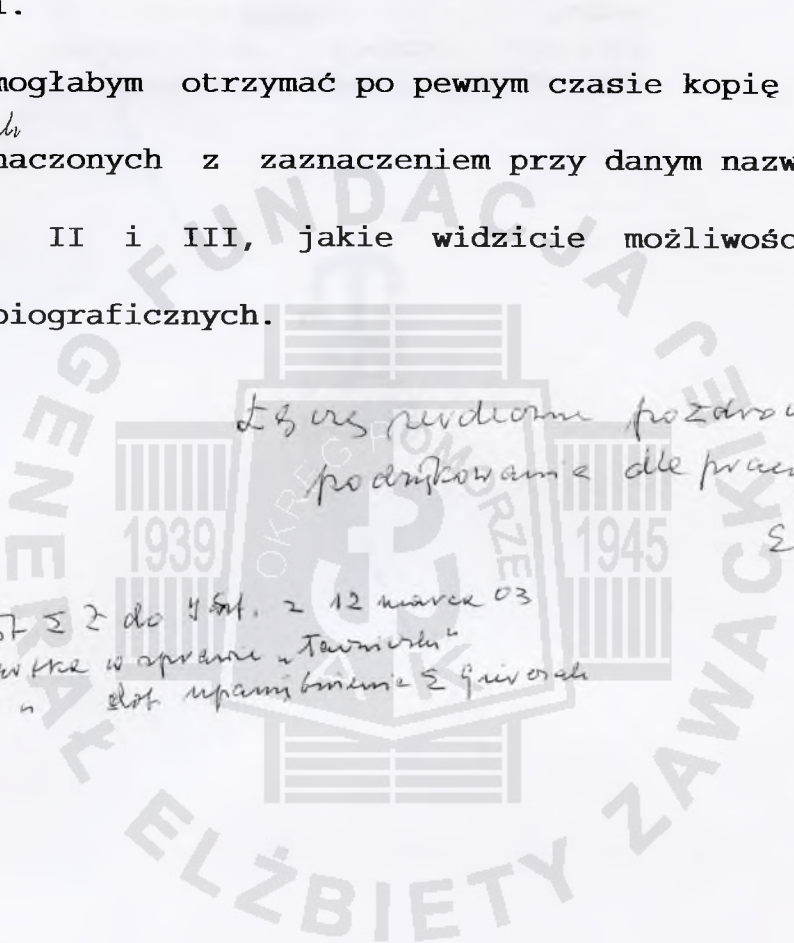 mogłabym otrzymać po pewnym czasie kopię
naczonych z zaznaczeniem przy danym nazw
II i III, jakie widzicie możliwośc
biograficznych.
Łączę serdeczne pozdrow
podziękowania dla prac
do J. Szt. z 12 marca 03
w sprawie „
" dot. upamiętnienia
FUNDACJA GENERAŁ ELŻBIETY ZAWACKIEJ
OKRĘG POMORZE
1939 1945
AK